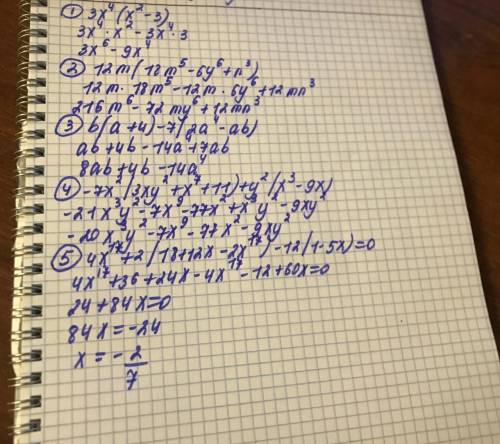 ① 3x⁴(x²-3)
3x⁴·x²-3x⁴·3
3x⁶-9x⁴
② 12m(18m⁵-6y⁶+n³)
12m·18m⁵-12m·6y⁶+12mn³
216m⁶-72my⁶+12mn³
③ b(a+4)-7(2a⁴-ab)
ab+4b-14a⁴+7ab
8ab+4b-14a⁴
④ -7x²(3xy²+x⁷+11)+y²(x³-9x)
-21x³y²-7x⁹-77x²+x³y²-9xy²
-20x³y²-7x⁹-77x²-9xy²
⑤ 4x¹⁷+2(18+12x-2x¹⁷)-12(1-5x)=0
4x¹⁷+36+24x-4x¹⁷-12+60x=0
24+84x=0
84x=-24
x=-2/7